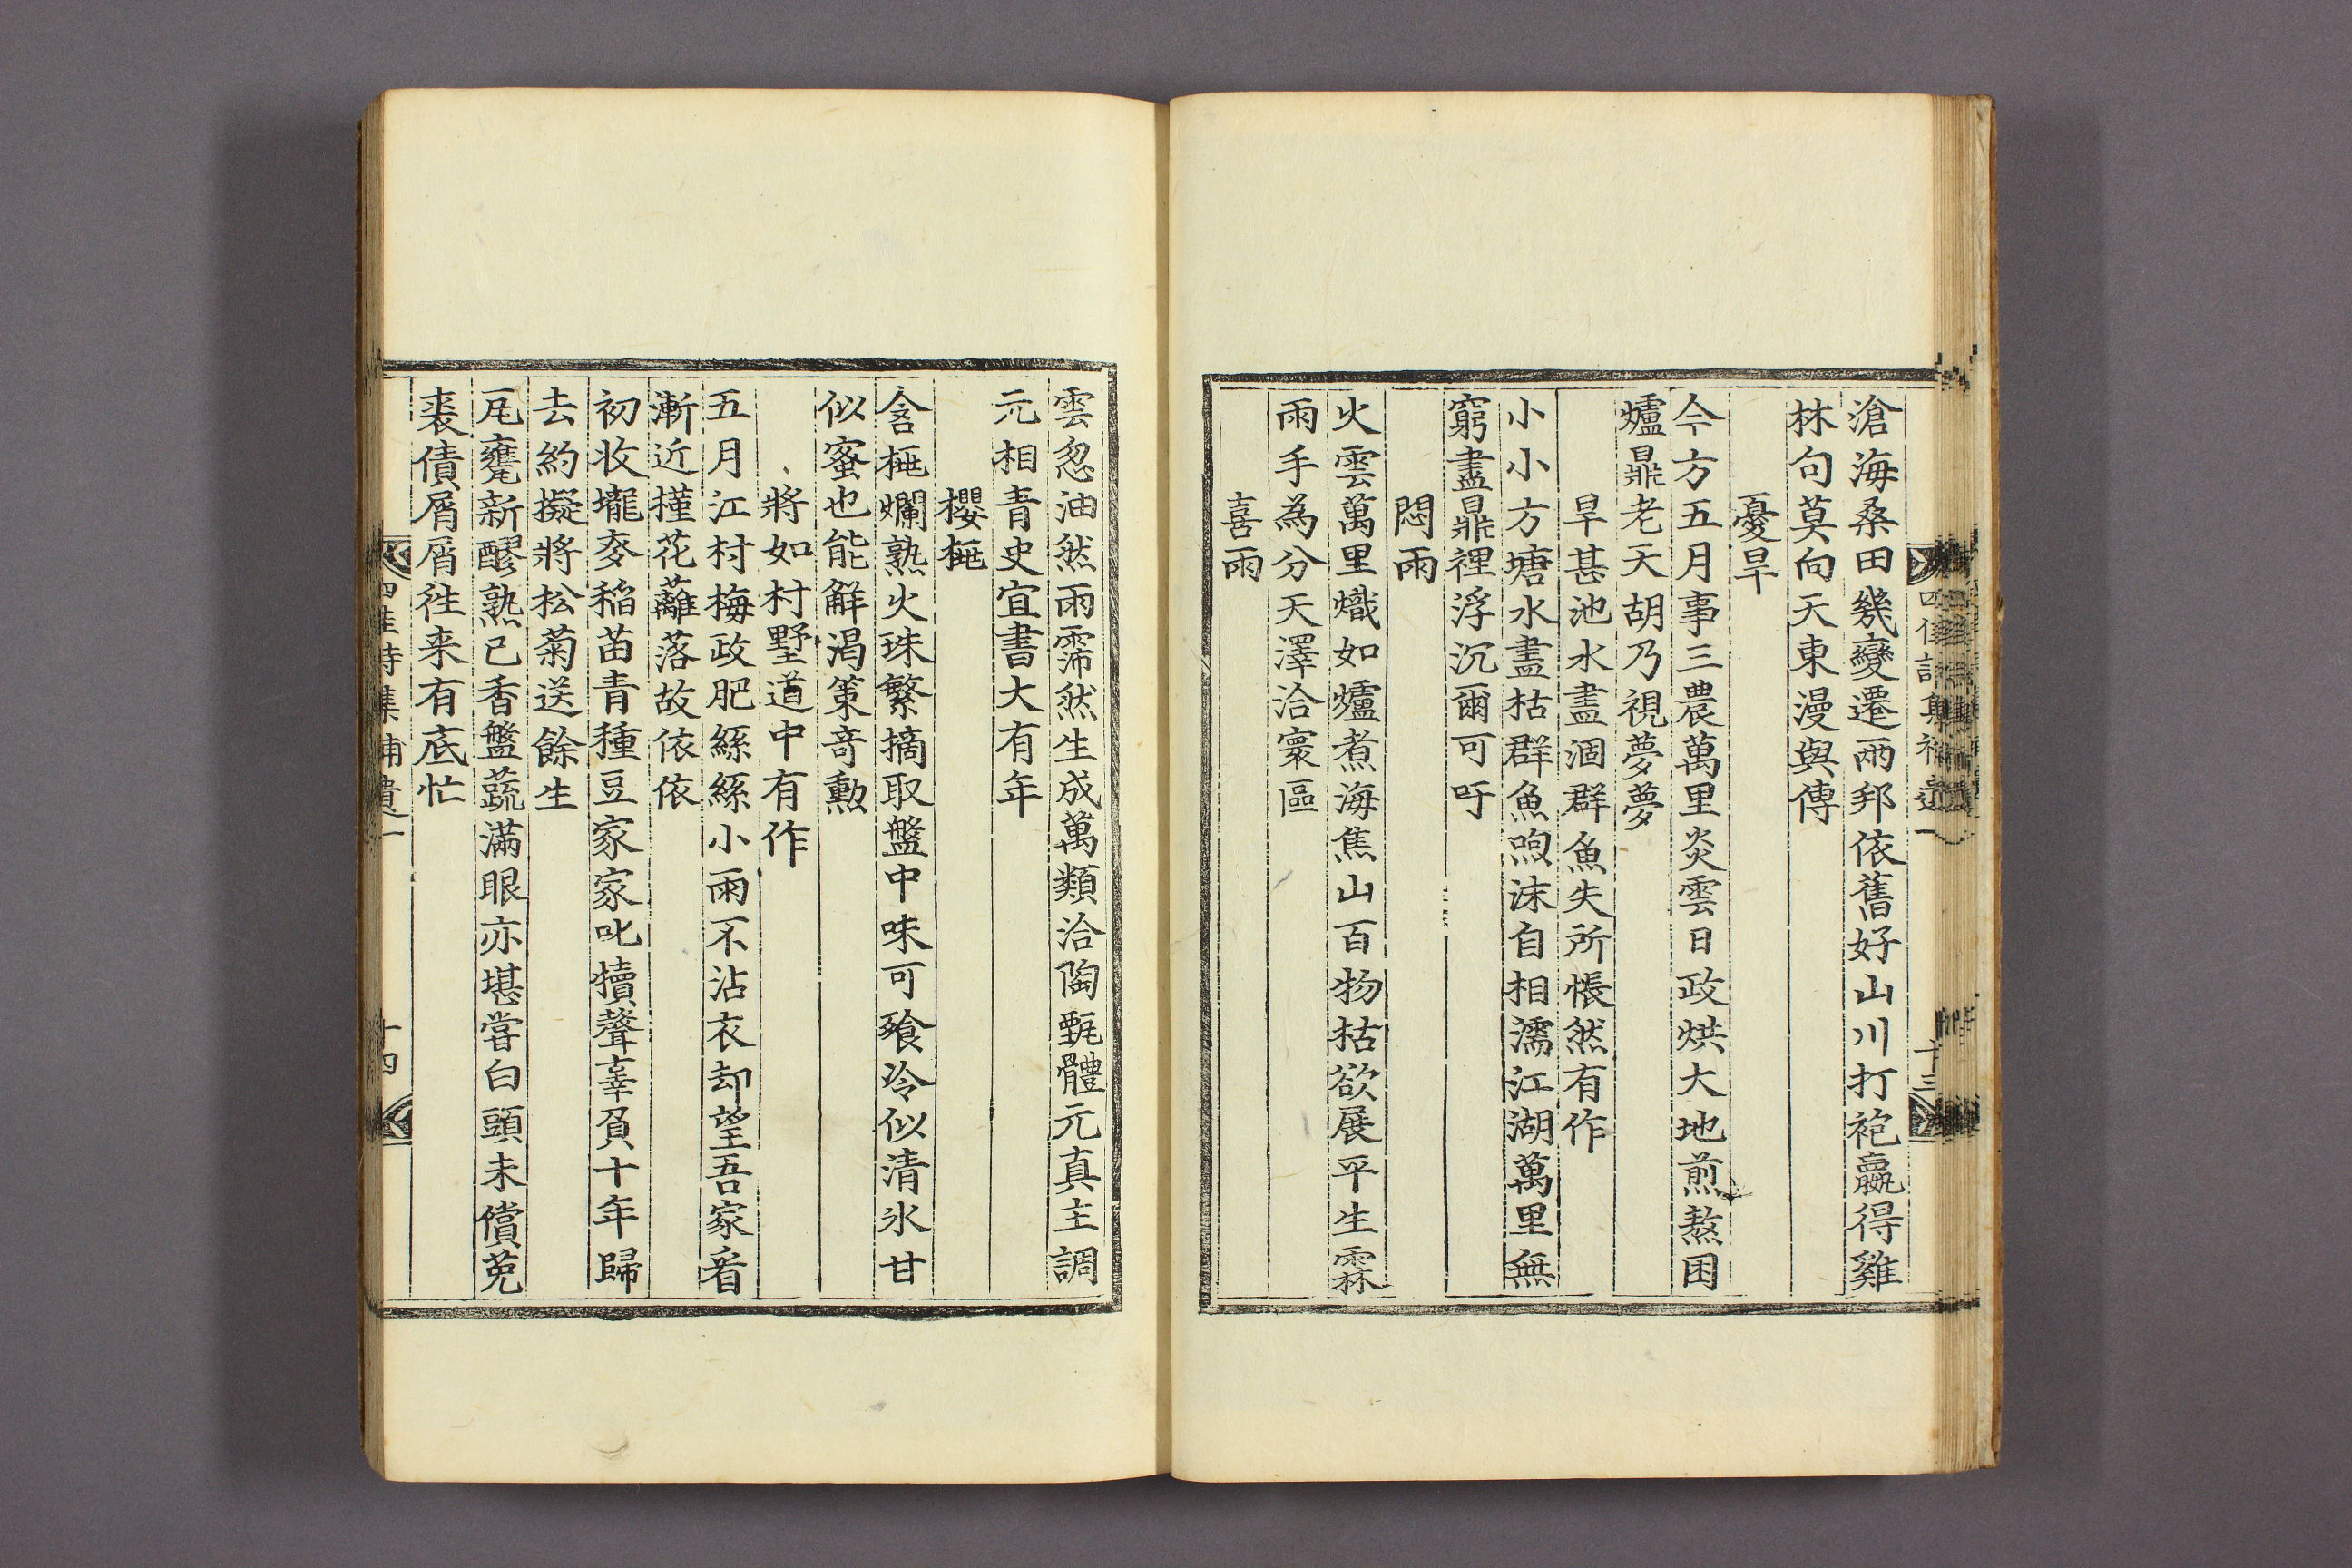 滄海桑田幾變遷兩邦依舊好山川打袍贏得雞
林句莫向天東漫與傳
憂旱
今方五月事三農萬里炎雲日政烘大地煎熬困
爐鼎老天胡乃視夢夢
旱甚池水盡涸群魚失所悵然有作
小小方塘水盡枯群魚呴沫自相濡江湖萬里無
窮盡鼎裡浮沉爾可吁
悶雨
火雲萬里熾如爐煮海焦山百物枯欲展平生霖
雨手為分天澤洽寰區
喜雨
雲忽油然雨霈然生成萬類洽陶甄體元真主調
元相青史宜書大有年
櫻桃
含桃爛熟火珠繁摘取盤中味可飱冷似清氷甘
似蜜也能解渴策奇勳
將如村墅道中有作
五月江村梅政肥絲絲小雨不沾衣却望吾家看
漸近槿花蘺落故依依
初收壠麥稻苗青種豆家家叱犢聲辜負十年歸
去約擬將松菊送餘生
瓦甕新醪熟已香盤蔬滿眼亦堪嘗白頭未償菟
裘債屑屑徃来有底忙
四佳詩集補遺一
十三
四佳詩集補遺一
十四